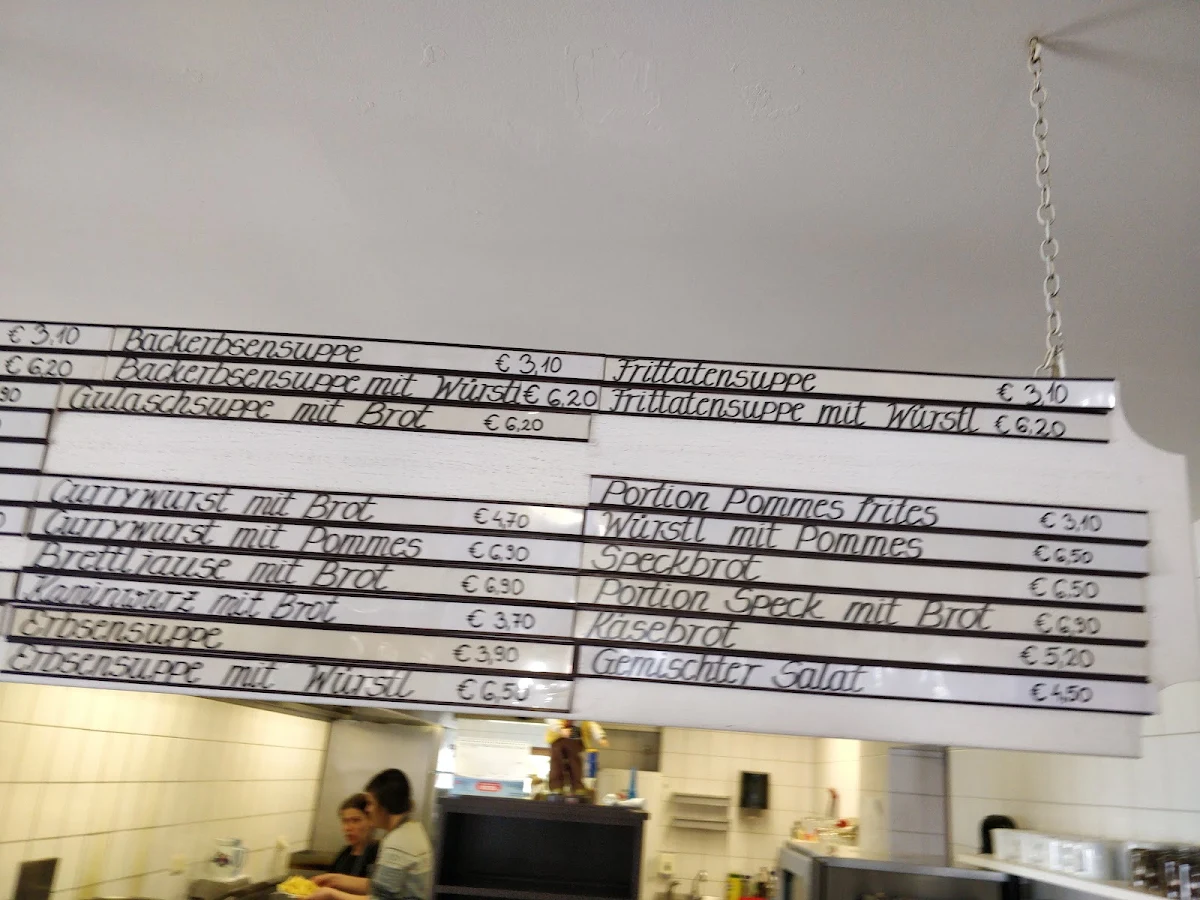 € 3,10
€ 6,20
90
Backerbsensuppe € 3,10
Backerbsensuppe mit Würstl € 6,20
Gulaschsuppe mit Brot € 6,20
Currywurst mit Brot € 4,70
Currywurst mit Pommes € 6,90
Brettljause mit Brot € 6,90
Kaminwurz mit Brot € 3,70
Erbsensuppe € 3,90
Erbsensuppe mit Würstl € 6,50
Frittatensuppe € 3,10
Frittatensuppe mit Würstl € 6,20
Portion Pommes frites € 3,10
Würstl mit Pommes € 6,50
Speckbrot € 6,50
Portion Speck mit Brot € 6,90
Käsebrot € 5,20
Gemischter Salat € 4,50